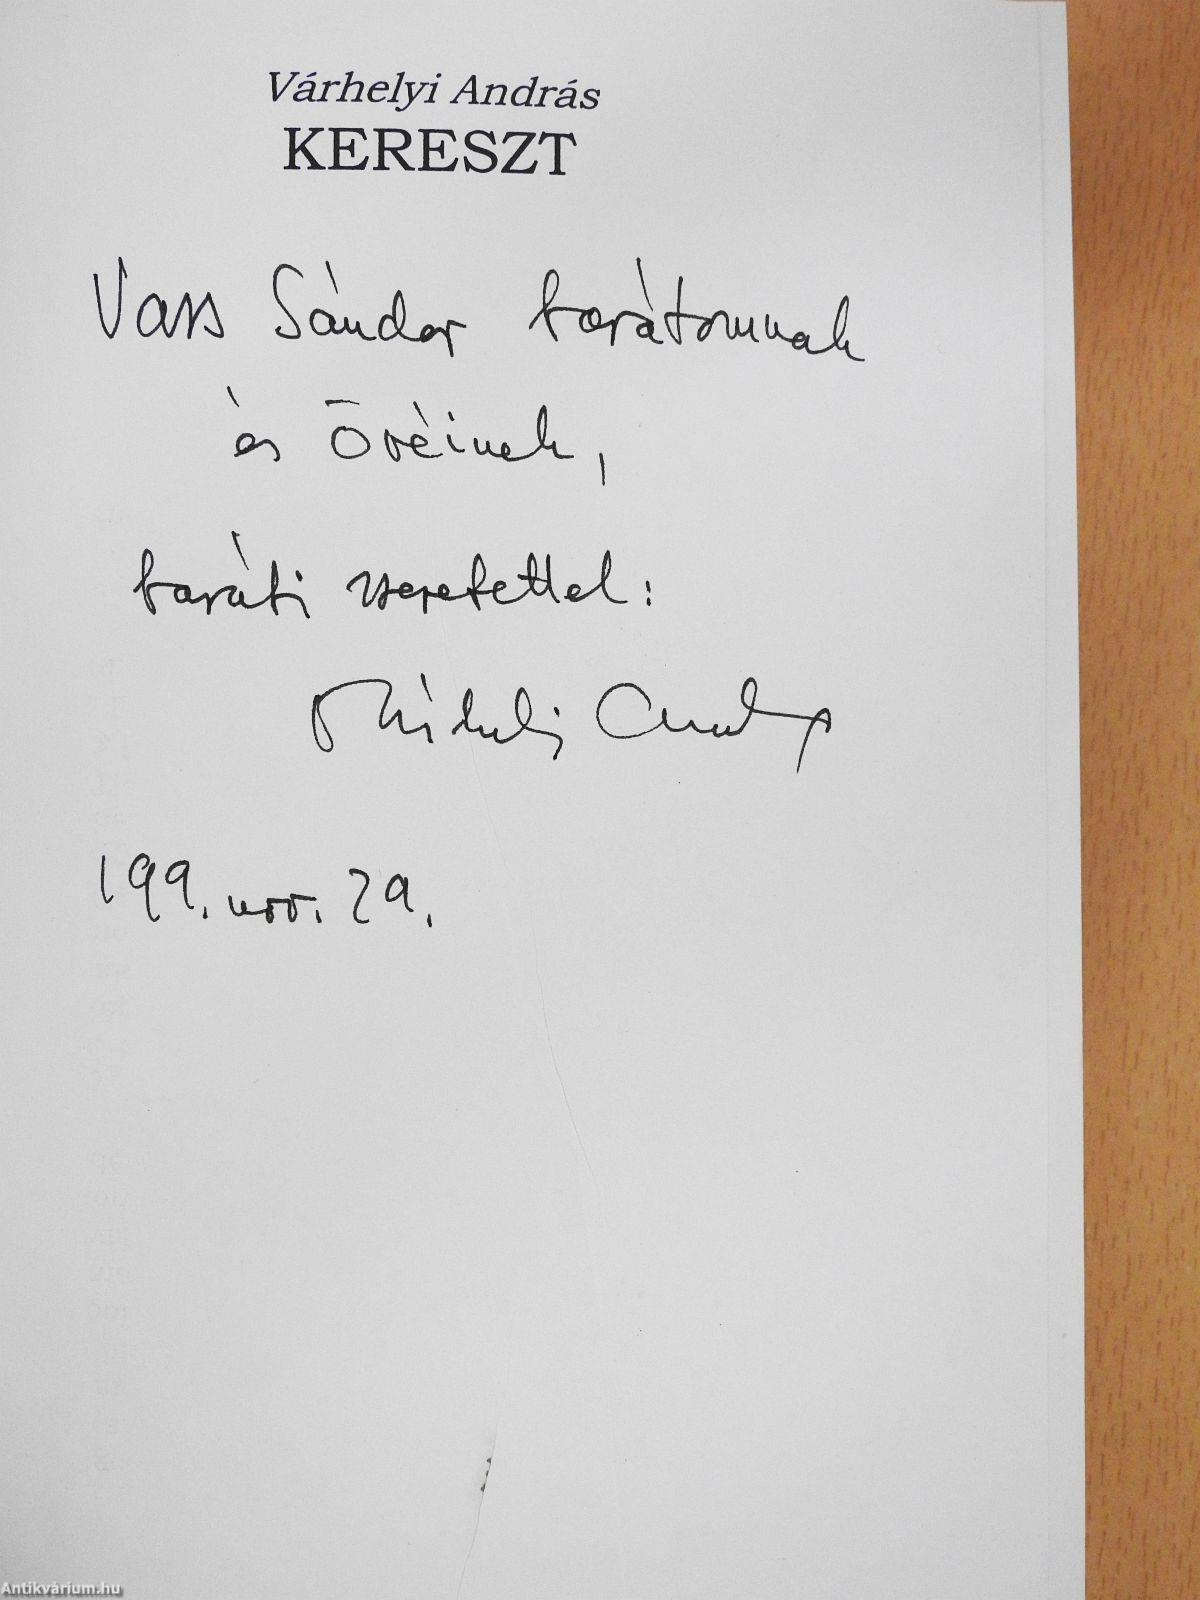 Várhelyi András
KERESZT
Vass Sándor barátomnak
és Övéinek,
baráti szeretettel:
Várhelyi András
199. nov. 29.
Antikvárium.hu